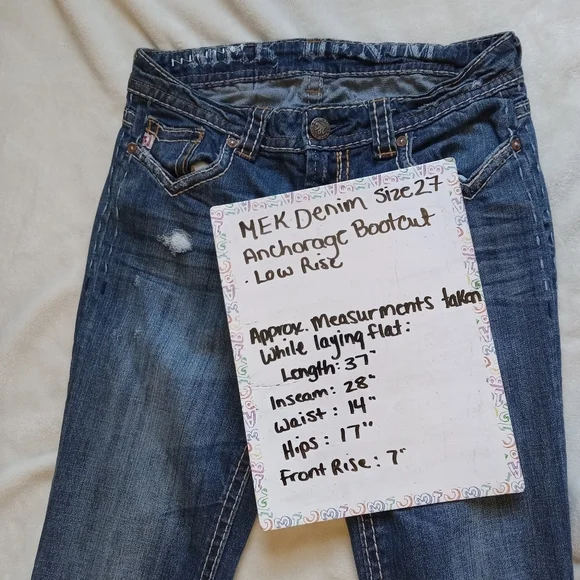 MEK Denim Size 27
Anchorage Bootcut
. Low Rise
Approx. Measurments taken
while laying flat:
Length: 37"
Inseam: 28"
Waist: 14"
Hips: 17"
Front Rise: 7"